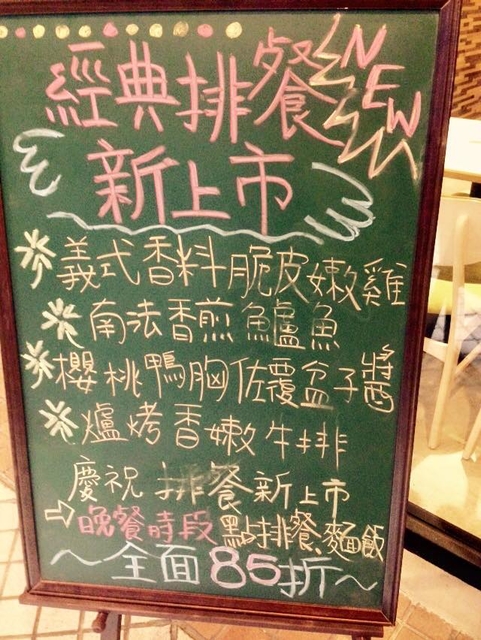 經典排餐
NEW
新上市
義式香料脆皮嫩雞
南法香煎鱸魚
櫻桃鴨胸佐覆盆子醬
爐烤香嫩牛排
慶祝排餐新上市
⇨晚餐時段點排餐、麵飯
~全面85折~